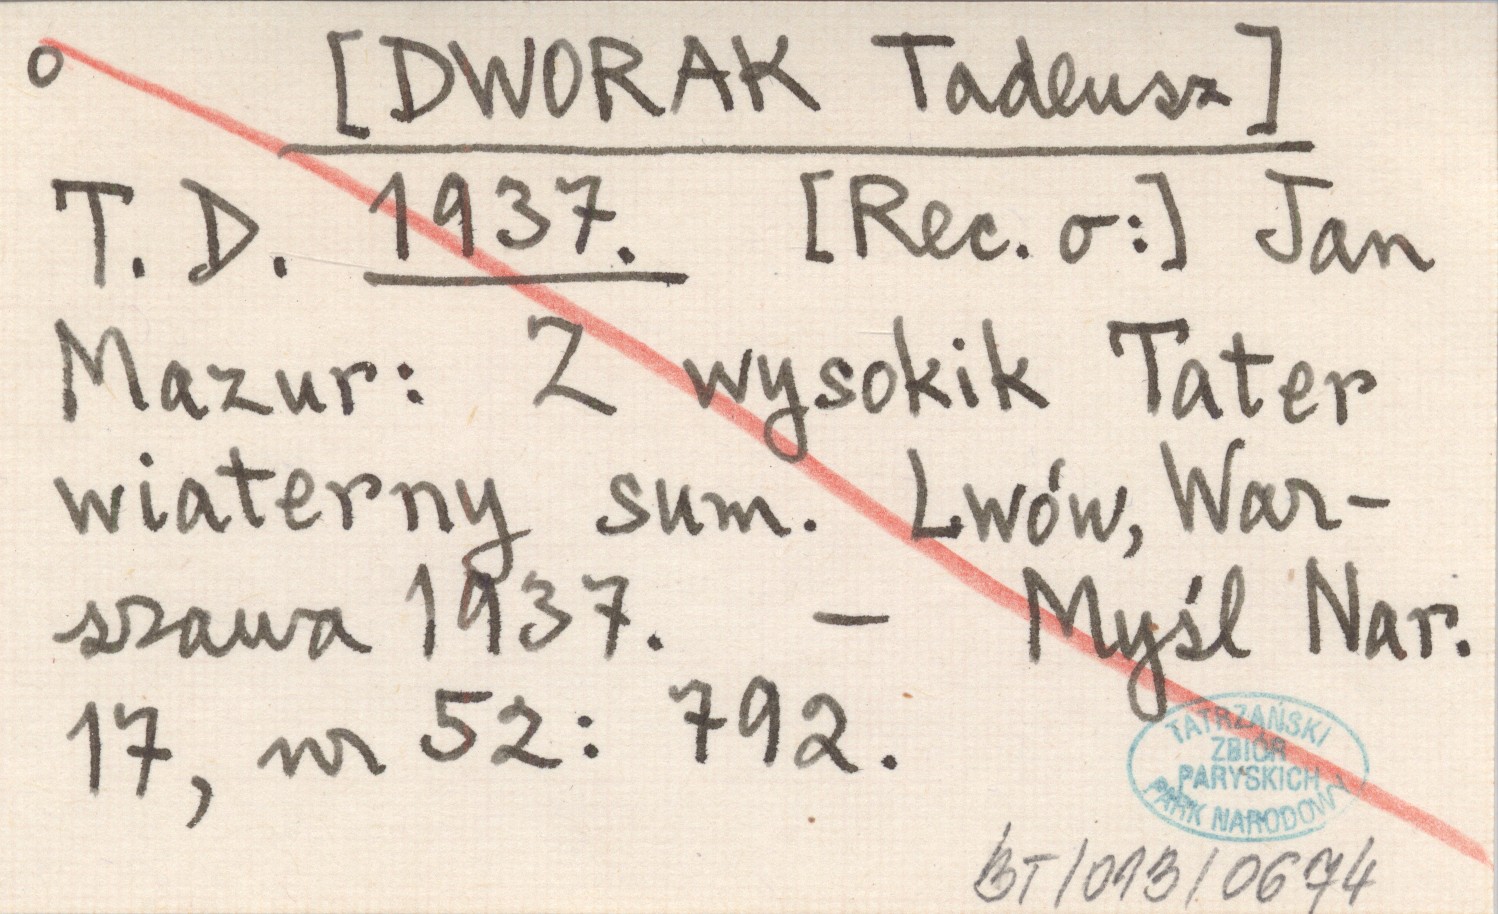 o [DWORAK Tadeusz]
T. D. 1937. [Rec. o:] Jan
Mazur: Z wysokik Tater
wiaterny sum. Lwów, War-
szawa 1937. — Myśl Nar.
17, nr 52: 792.
TATRZAŃSKI
ZBIÓR
PARYSKICH
PARK NARODOWY
BT/013/0674